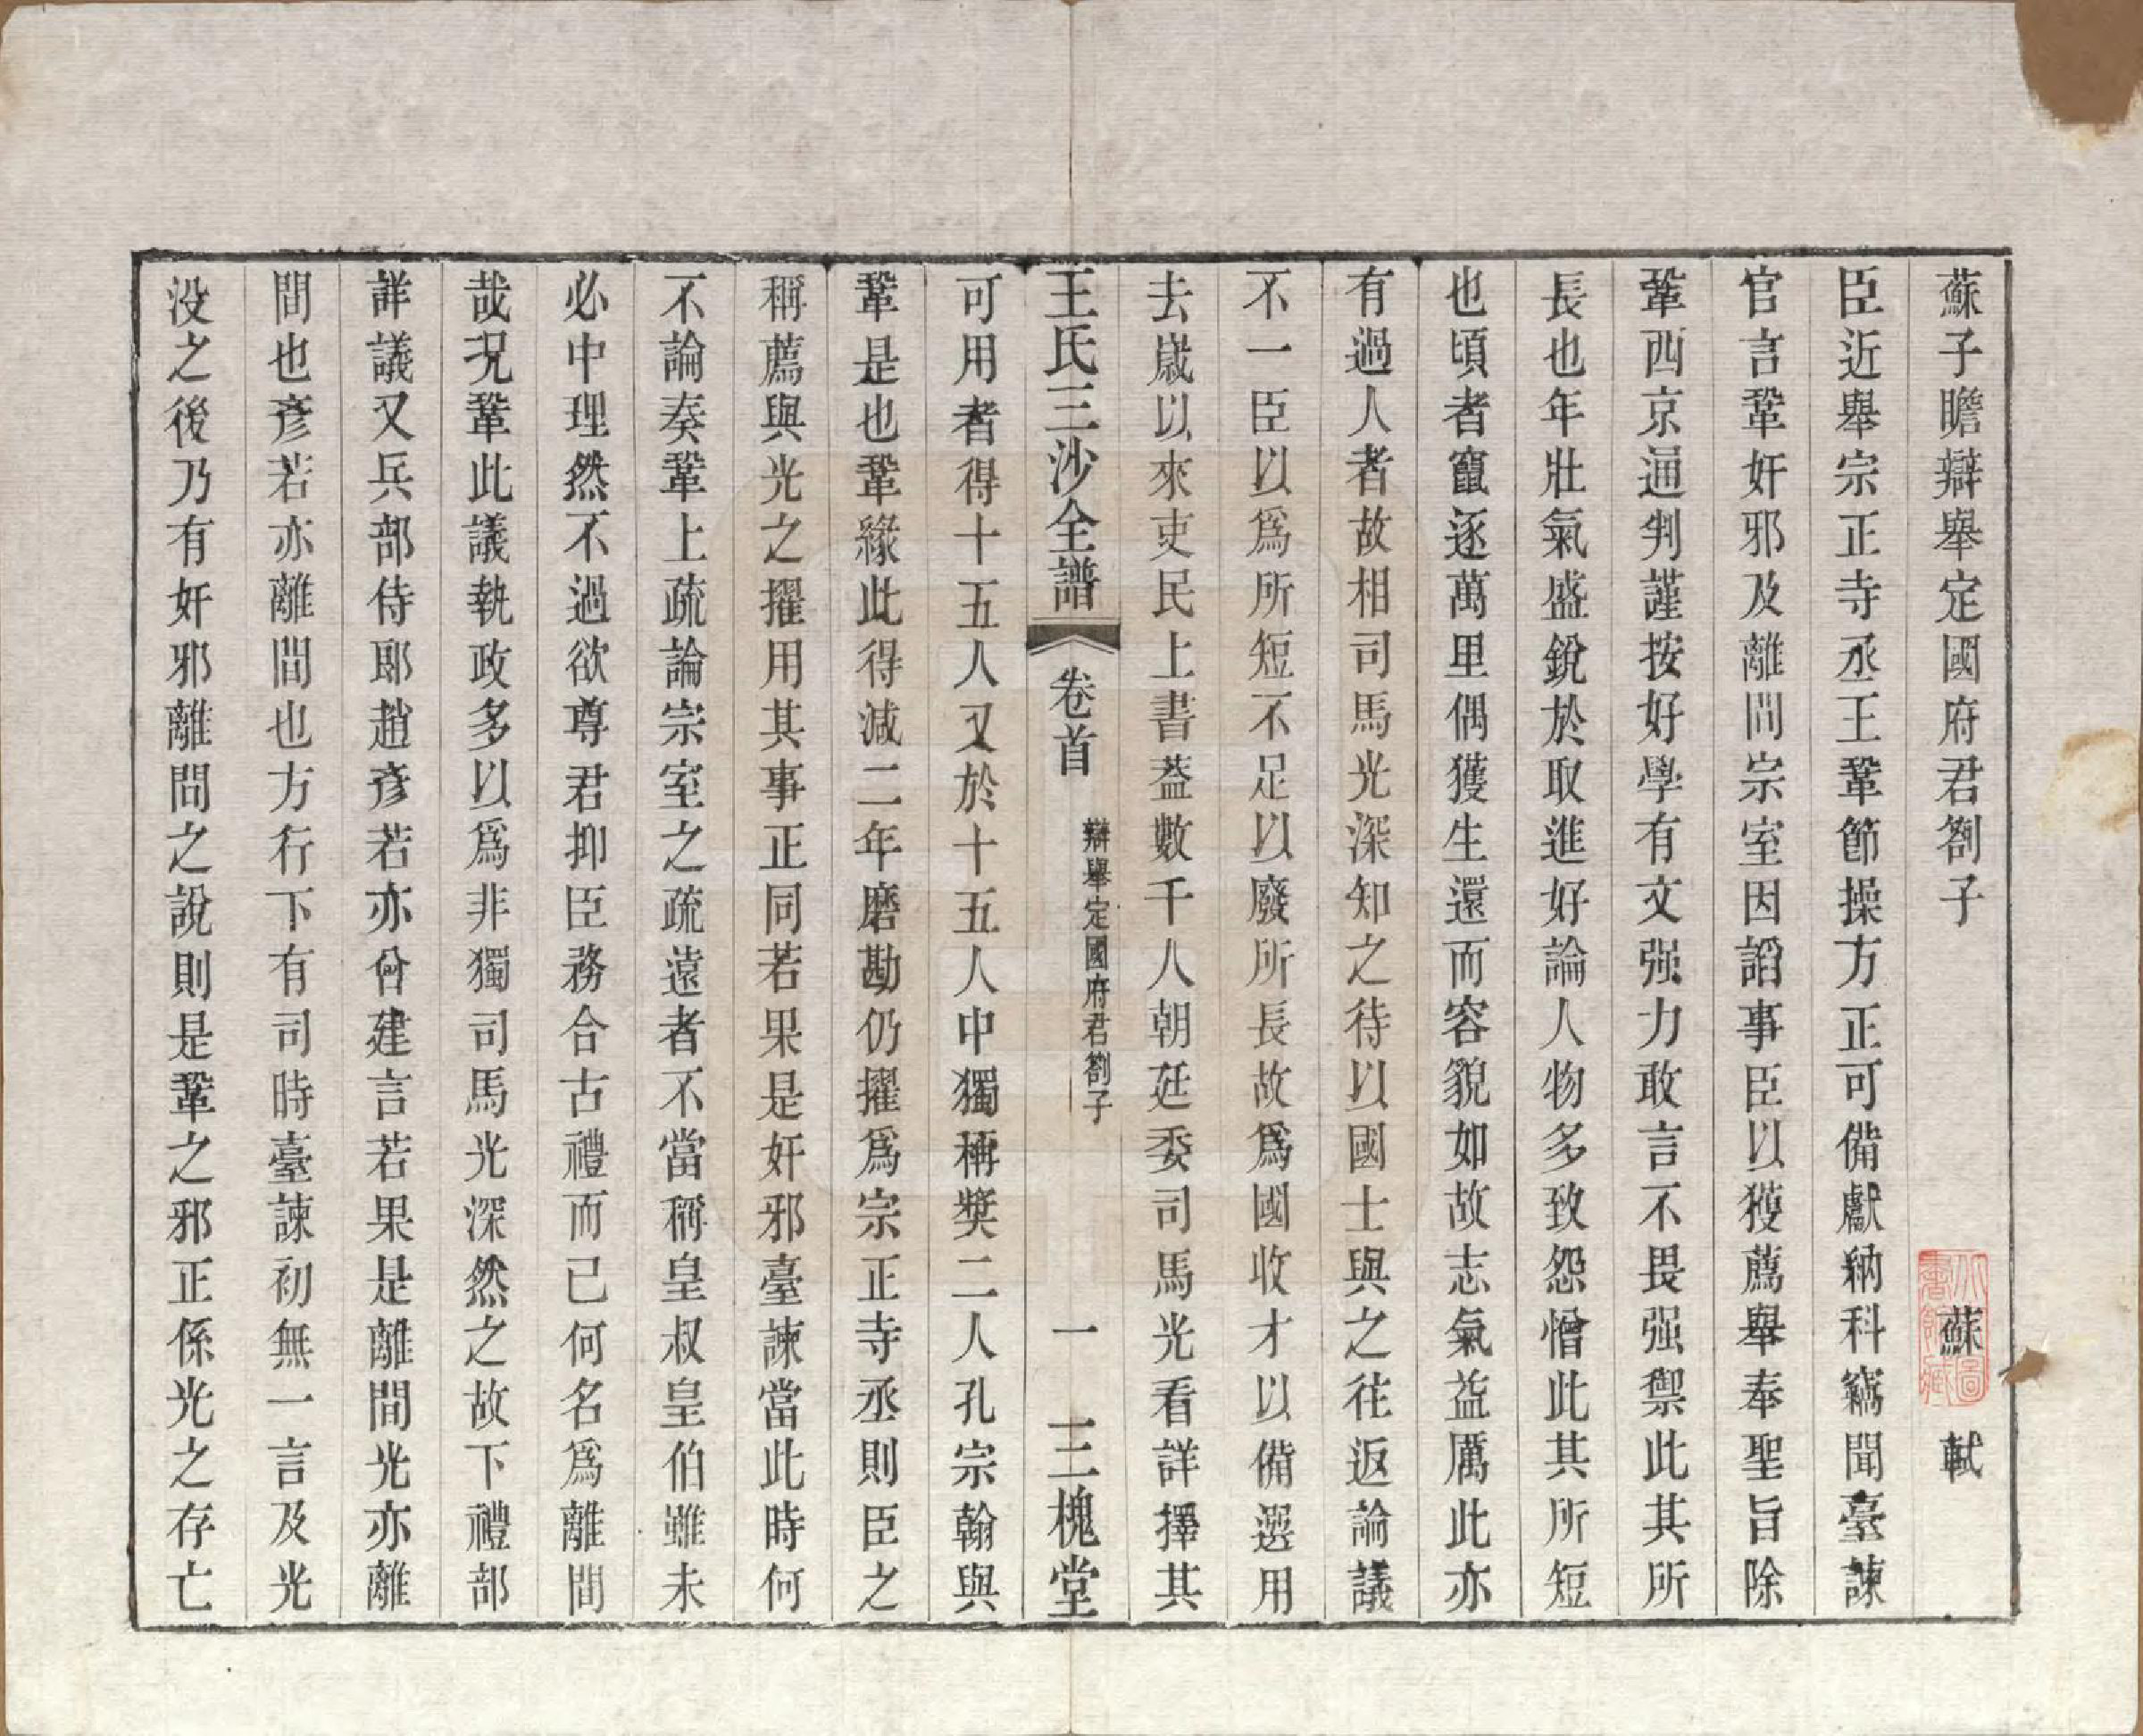 蘇子瞻辯舉定國府君劄子 蘇軾
臣近舉宗正寺丞王鞏節操方正可備獻納科竊聞臺諫
官言鞏奸邪及離間宗室因謟事臣以獲薦舉奉聖旨除
鞏西京通判謹按好學有文强力敢言不畏强禦此其所
長也年壯氣盛銳於取進好論人物多致怨憎此其所短
也頃者竄逐萬里偶獲生還而容貌如故志氣益厲此亦
有過人者故相司馬光深知之待以國士與之往返論議
不一臣以爲所短不足以廢所長故爲國收才以備選用
去歲以來吏民上書葢數千人朝廷委司馬光看詳擇其
王氏三沙全譜 卷首 辯舉定國府君劄子 一 三槐堂
可用者得十五人又於十五人中獨稱奬二人孔宗翰與
鞏是也鞏緣此得減二年磨勘仍擢爲宗正寺丞則臣之
稱薦與光之擢用其事正同若果是奸邪臺諫當此時何
不論奏鞏上疏論宗室之疏遠者不當稱皇叔皇伯雖未
必中理然不過欲尊君抑臣務合古禮而已何名爲離間
哉況鞏此議執政多以爲非獨司馬光深然之故下禮部
詳議又兵部侍郎趙彥若亦曾建言若果是離間光亦離
間也彥若亦離間也方行下有司時臺諫初無一言及光
没之後乃有奸邪離間之說則是鞏之邪正係光之存亡